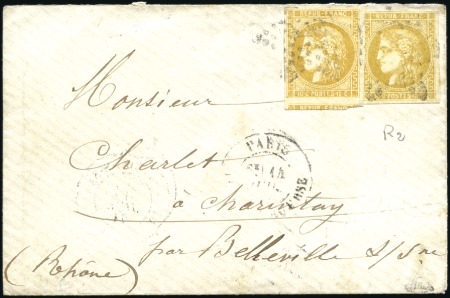 REPUB. FRANC. REPUB. FRANC.
10 C. POSTES 10 C.
R2
Monsieur
PARIS
Charlet
à Charentay
par Belleville s/Sne
(Rhône)